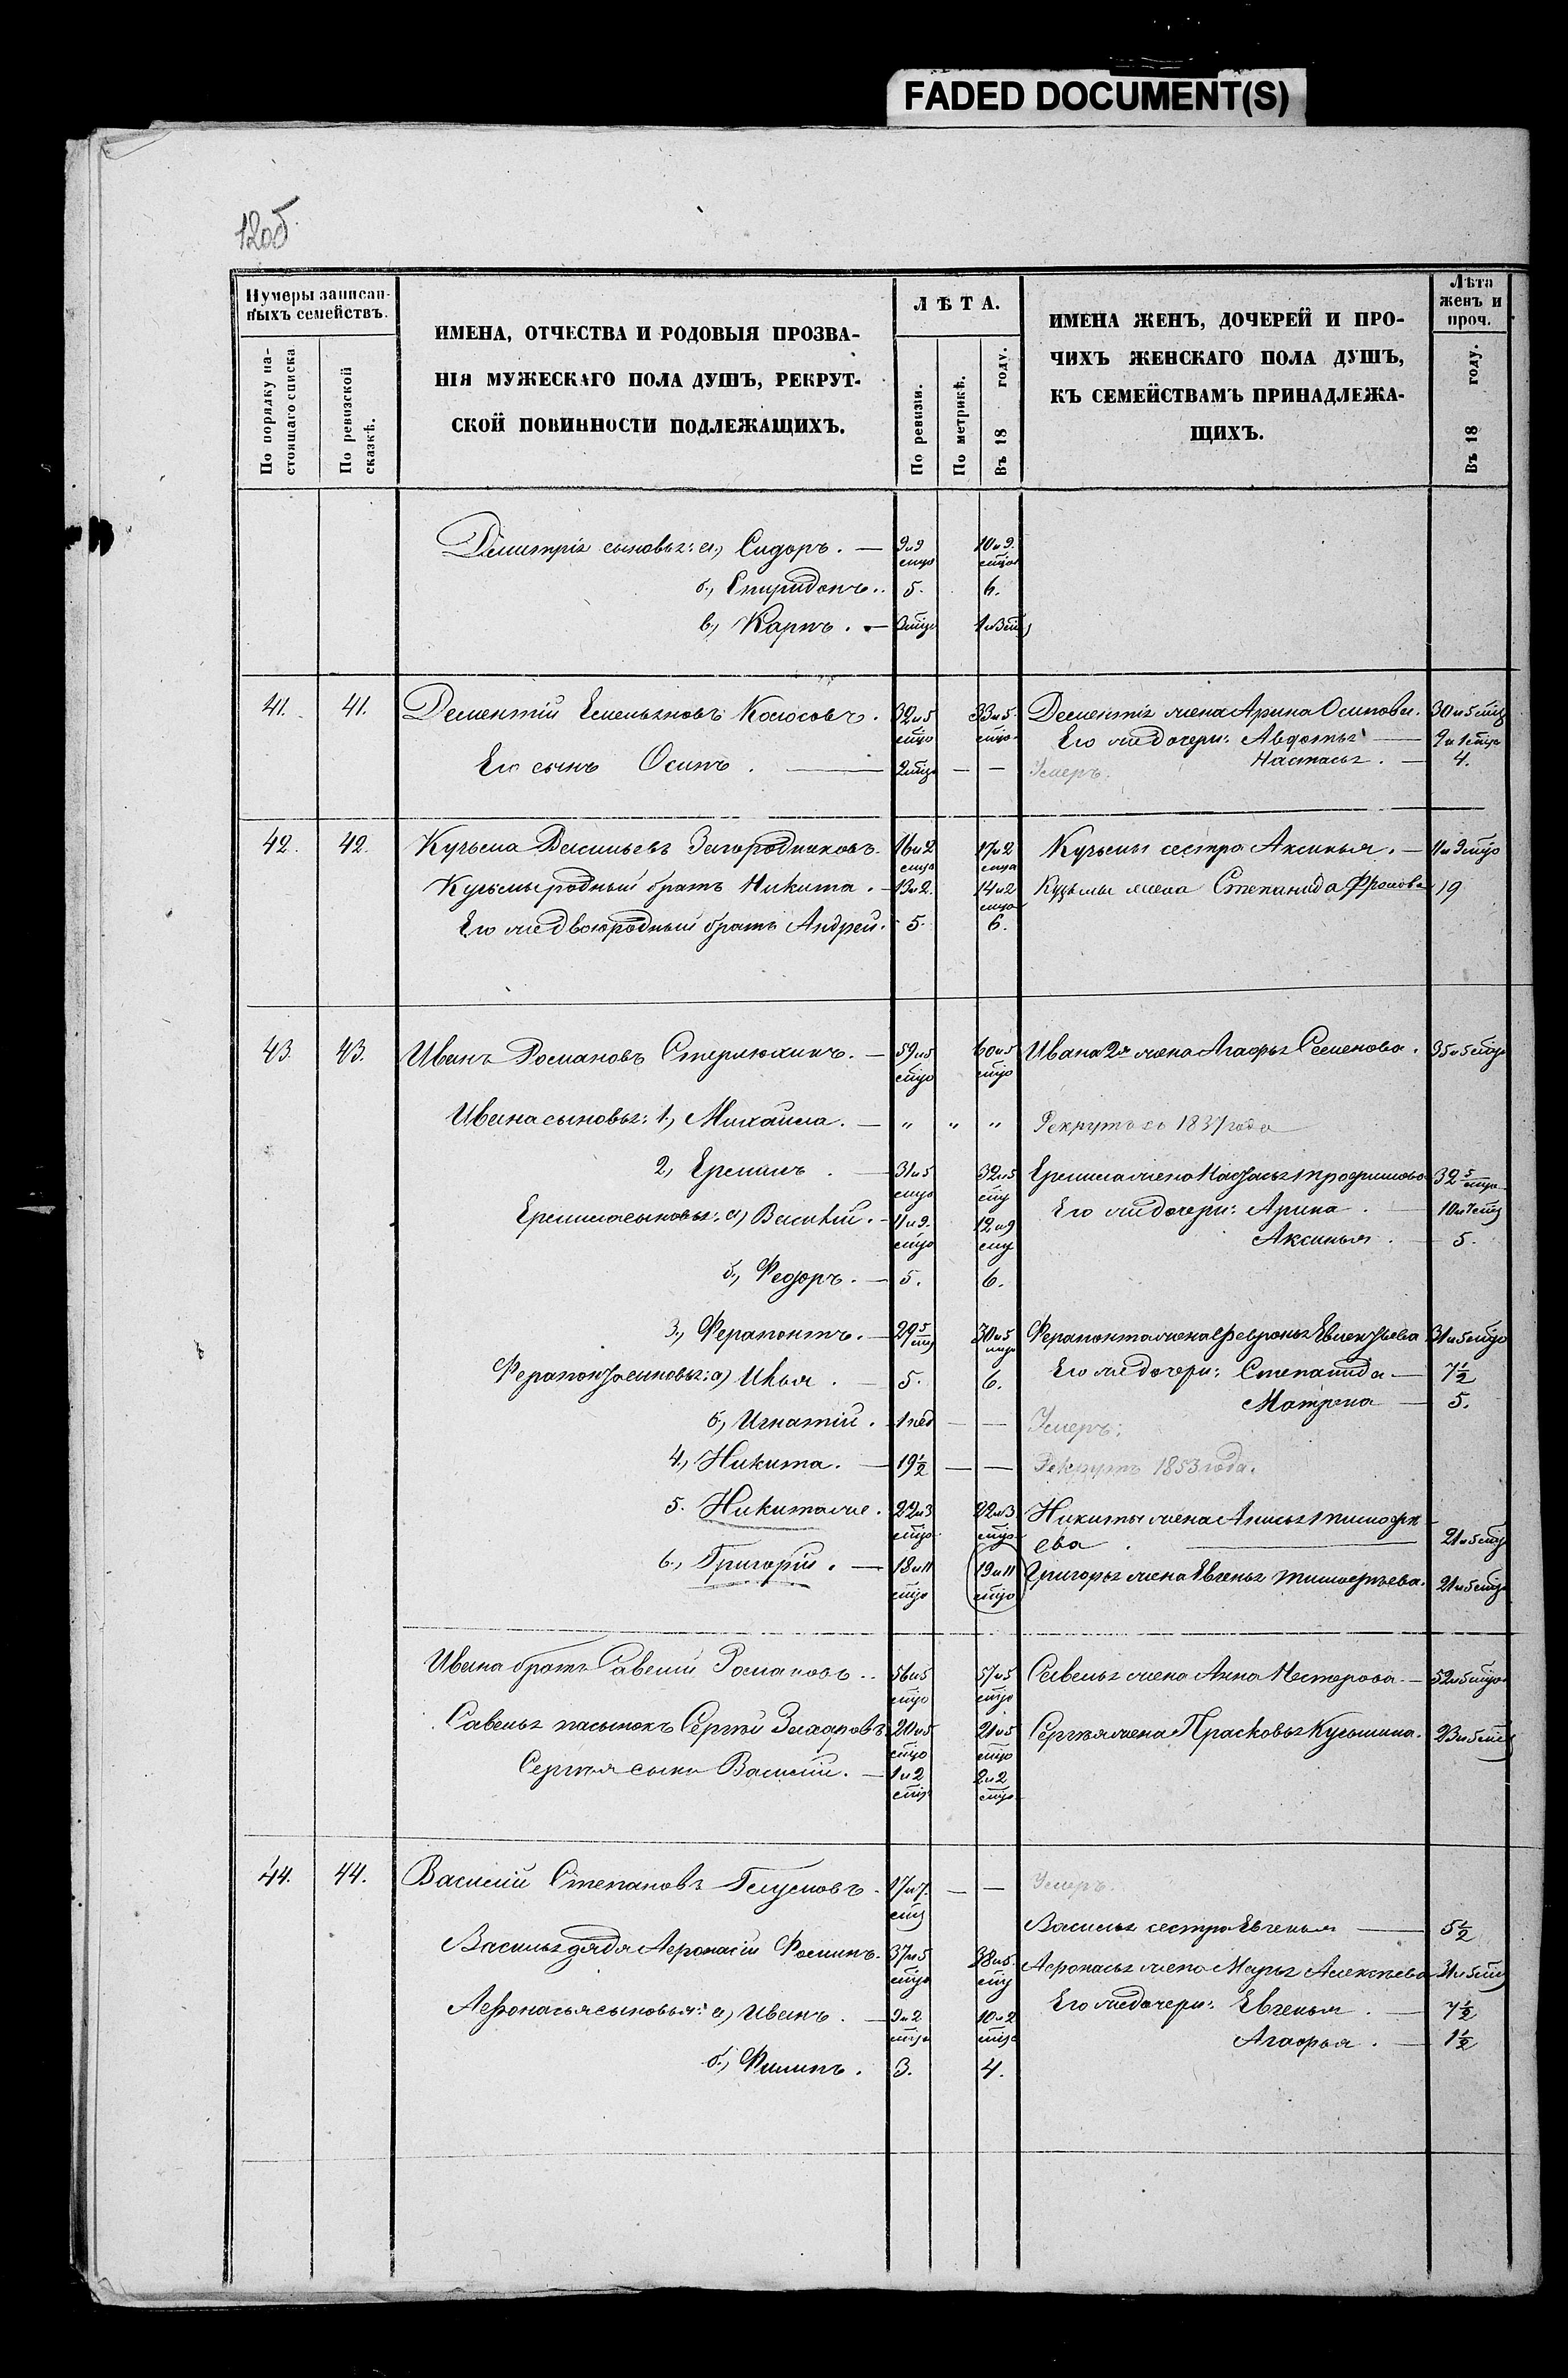 FADED DOCUMENT(S)
12об.
Нумеры записан-
ныхъ семействъ.
По порядку на-
стоящаго списка
По ревизской
сказкѣ.
ИМЕНА, ОТЧЕСТВА И РОДОВЫЯ ПРОЗВА-
НІЯ МУЖЕСКАГО ПОЛА ДУШЪ, РЕКРУТ-
СКОЙ ПОВИННОСТИ ПОДЛЕЖАЩИХЪ.
ЛѢТА.
По ревизіи.
По метрикѣ.
Въ 18 году.
ИМЕНА ЖЕНЪ, ДОЧЕРЕЙ И ПРО-
ЧИХЪ ЖЕНСКАГО ПОЛА ДУШЪ,
КЪ СЕМЕЙСТВАМЪ ПРИНАДЛЕЖА-
ЩИХЪ.
Лѣта
женъ и
проч.
Въ 18 году.
Дмитрія сыновья: а., Сидоръ. — 9 и 9 10 и 9.
б., Спиридонъ.. 5. 6.
в., Карпъ. —
41. 41. Дементій Емельяновъ Колосовъ. 32 и 5 33 и 5. Дементія жена Арина Осипова. 30 и 5
Его же дочери: Авдотья — 9 и 1
Его сынъ Осипъ. — — — Умеръ. Настасья. — 4.
42. 42. Кузьма Васильевъ Загородниковъ. 16 и 2 17 и 2 Кузьмы сестра Аксинья. — 11 и 9
Кузьмы родный братъ Никита. — 13 и 2. 14 и 2 Кузьмы жена Степанида Фролова 19
Его же двоюродный братъ Андрей. 5. 6.
43. 43. Иванъ Романовъ Стерлюхинъ. — 59 и 5 60 и 5 Ивана 2я жена Агафья Семенова. 35 и 5
Ивана сыновья: 1., Михайла. — „ „ „ Рекрутъ съ 1837 года
2., Еремѣй. — 31 и 5 32 и 5 32 5
Еремѣя сыновья: а) Василій. — 11 и 9. 12 и 9 Его же дочери: Арина. 10 и 7
Аксинья. — 5.
б., Федоръ. — 5. 6.
3., Ферапонтъ. — 29 5 30 и 5 Ферапонта жена Февронья 31 и 5
Ферапонта сыновья: а) Илья. — 5. 6. Его же дочери: Степанида — 7½
Матрена — 5.
б., Игнатій. 1 нед — — Умеръ.
4., Никита. — 19½ — — Рекрутъ 1853 года.
5. Никита же. 22 и 3 22 и 3 Никиты жена Анисья Тимофѣ-
ева. — 21 и 5
6., Григорій. — 18 и 11 19 и 11 Григорья жена Евгенья Тимофѣева. 21 и 5
Ивана братъ Савелій Романовъ.. 56 и 5 57 и 5 Савелья жена Анна Нестерова. — 52 и 5
Савелья пасынокъ Сергѣй Захаровъ 20 и 5 21 и 5 Сергѣя жена Прасковья Кузьмина. 23 и 5
Сергѣя сынъ Василій. — 1 и 2 2 и 2
44. 44. Василій Степановъ Глуховъ. 17 и 7. — — Умеръ.
Василья сестра Евгенья — 5½
Василья дядя Афонасій Фоминъ. 37 и 5 38 и 5. Афонасья жена Марья Алексѣева 31 и 5
Афонасья сыновья: а) Иванъ. — 9 и 2 10 и 2 Его же дочери: Евгенья. — 7½
Агафья. — 1½
б., Филипъ. 3. 4.